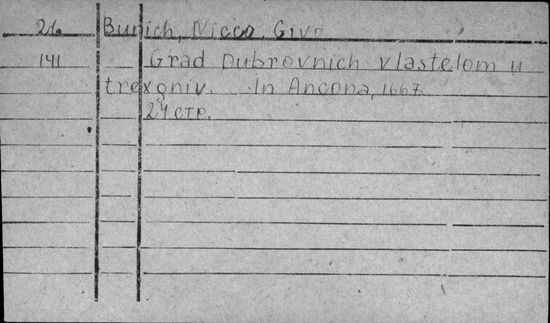 26 Bunich, Nicco Givo
141 Grad Dubrovnich vlastelom u
trexgniv. In Ancona, 1667.
24 стр.